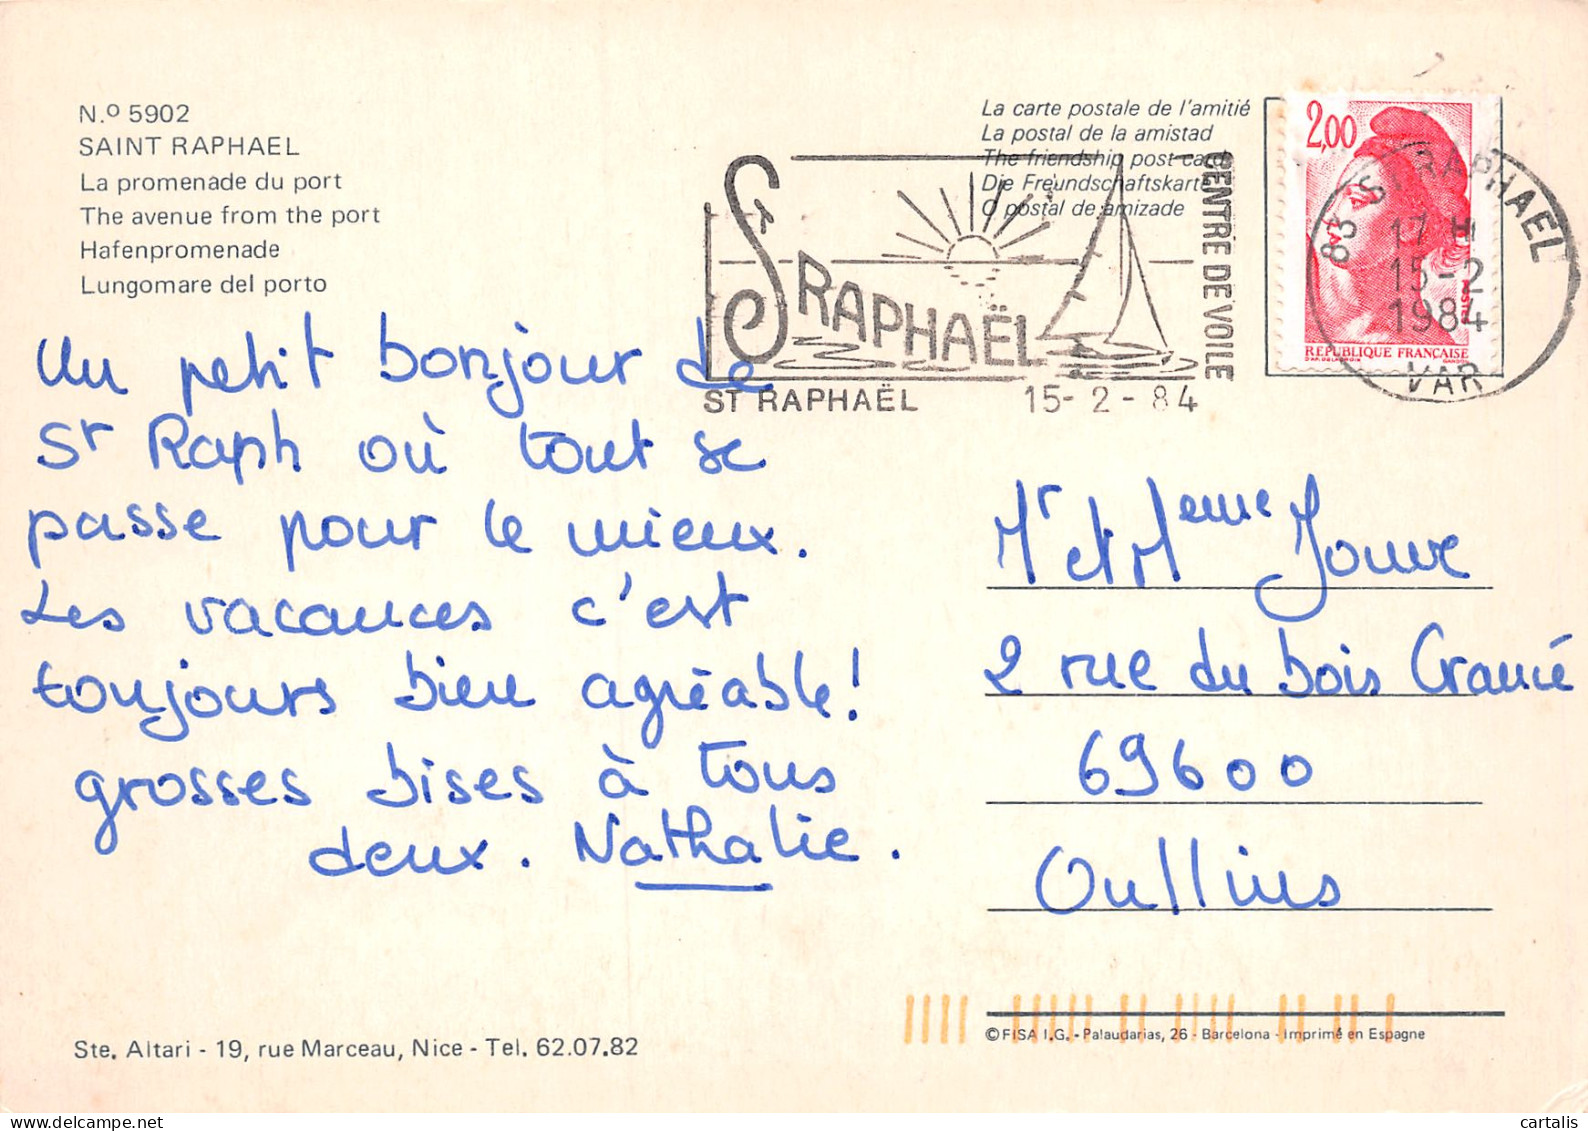 N.º 5902
SAINT RAPHAEL
La promenade du port
The avenue from the port
Hafenpromenade
Lungomare del porto
La carte postale de l'amitié
La postal de la amistad
The friendship post card
Die Freundschaftskarte
O postal de amizade
ST RAPHAËL
CENTRE DE VOILE
ST RAPHAËL 15-2-84
2,00
POSTES
REPUBLIQUE FRANÇAISE
83 ST RAPHAEL
17 H
15-2
1984
VAR
Un petit bonjour de
St Raph où tout se
passe pour le mieux.
Les vacances c'est
toujours bien agréable!
grosses bises à tous
deux. Nathalie.
Mr et Meme Jouve
2 rue du bois Crancé
69600
Oullins
Ste. Altari - 19, rue Marceau, Nice - Tel. 62.07.82
© FISA I.G. - Palaudarias, 26 - Barcelona - Imprimé en Espagne
cartalis